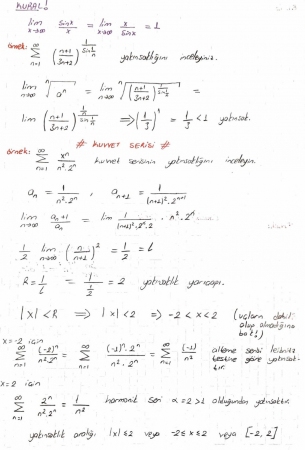 KURAL!
lim x→∞ sinx/x = lim x→∞ x/sinx = 1
örnek: ∞ Σ n=1 ((n+1)/(3n+2))^(1/sin(1/n)) yakınsaklığını inceleyiniz.
lim n→∞ ⁿ√aⁿ = lim n→∞ ⁿ√((n+1)/(3n+2))^(1/sin(1/n)) =
lim ((n+1)/(3n+2))^((1/n)/sin(1/n)) ⇒ (1/3)¹ = 1/3 < 1 yakınsak.
# KUVVET SERİSİ #
örnek: ∞ Σ n=1 xⁿ/(n².2ⁿ) kuvvet serisinin yakınsaklığını inceleyin.
aₙ = 1/(n².2ⁿ) , aₙ₊₁ = 1/((n+1)².2ⁿ⁺¹)
lim n→∞ aₙ₊₁/aₙ = lim 1/((n+1)².2ⁿ.2) . n².2ⁿ
1/2 lim n→∞ (n/(n+1))² = 1/2 = L
R = 1/L = 1/(1/2) = 2 yakınsaklık yarıçapı.
|x| < R ⇒ |x| < 2 ⇒ -2 < x < 2 (uçların dahil olup olmadığına bak!)
x=-2 için
∞ Σ n=1 (-2)ⁿ/(n².2ⁿ) = Σ (-1)ⁿ.2ⁿ/(n².2ⁿ) = ∞ Σ n=1 (-1)ⁿ/n² alterne serisi leibnitz testine göre yakınsaktır.
x=2 için
∞ Σ n=1 2ⁿ/(n².2ⁿ) = 1/n² harmonik seri α=2>1 olduğundan yakınsaktır.
yakınsaklık aralığı |x| ≤ 2 veya -2≤x≤2 veya [-2,2]